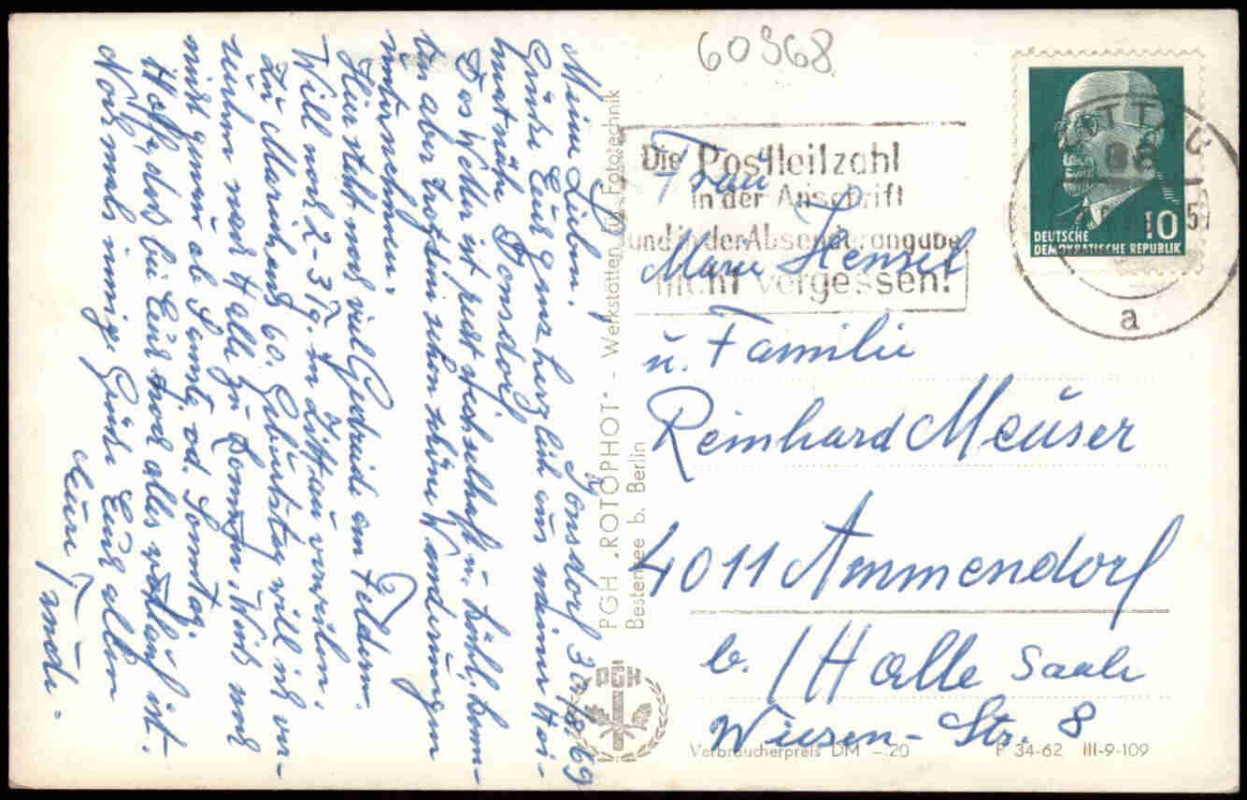 60968
Jonsdorf 30/8.69
Meine Lieben.
Grüße Euch ganz herzlich aus meiner Hei-
mat nähe Jonsdorf
Das Wetter ist recht wechselhaft u. kühl, kann-
tu aber trotzdem schon schöne Wanderungen
unternehmen.
Hier steht noch viel Getreide am Feldern.
Will noch 2-3 Tg. in Zittau verweilen.
Zu Mariechens 60. Geburtstag will ich ver-
suchen nach Halle zu kommen. Weiß noch
nicht genau ob Sonnt. od. Sonntag.
Hoffe, daß bei Euch noch alles wohlauf ist.
Nochmals innige Grüße Euch allen
Eure Trude.
PGH „ROTOPHOT“ - Werkstätten für Fototechnik
Bestensee b. Berlin
Die Postleitzahl
in der Anschrift
und in der Absenderangabe
nicht vergessen!
ZITTAU
88
a
10
DEUTSCHE
DEMOKRATISCHE REPUBLIK
Frau
Marie Hensel
u. Familie
Reinhard Meuser
4011 Ammendorf
b. / Halle Saale
Wiesen-Str. 8
Verbraucherpreis DM -.20 P 34-62 III-9-109